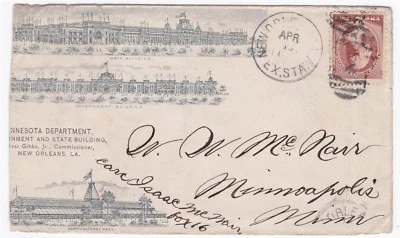 MAIN BUILDING.
GOVERNMENT BUILDING.
NNESOTA DEPARTMENT.
NMENT AND STATE BUILDING,
iver Gibbs, Jr., Commissioner,
NEW ORLEANS, LA.
HORTICULTURAL HALL.
NEW ORLE
APR
EX. STA.
W. W. McNair
Minneapolis
Minn
care Isaac McNair
Box 16